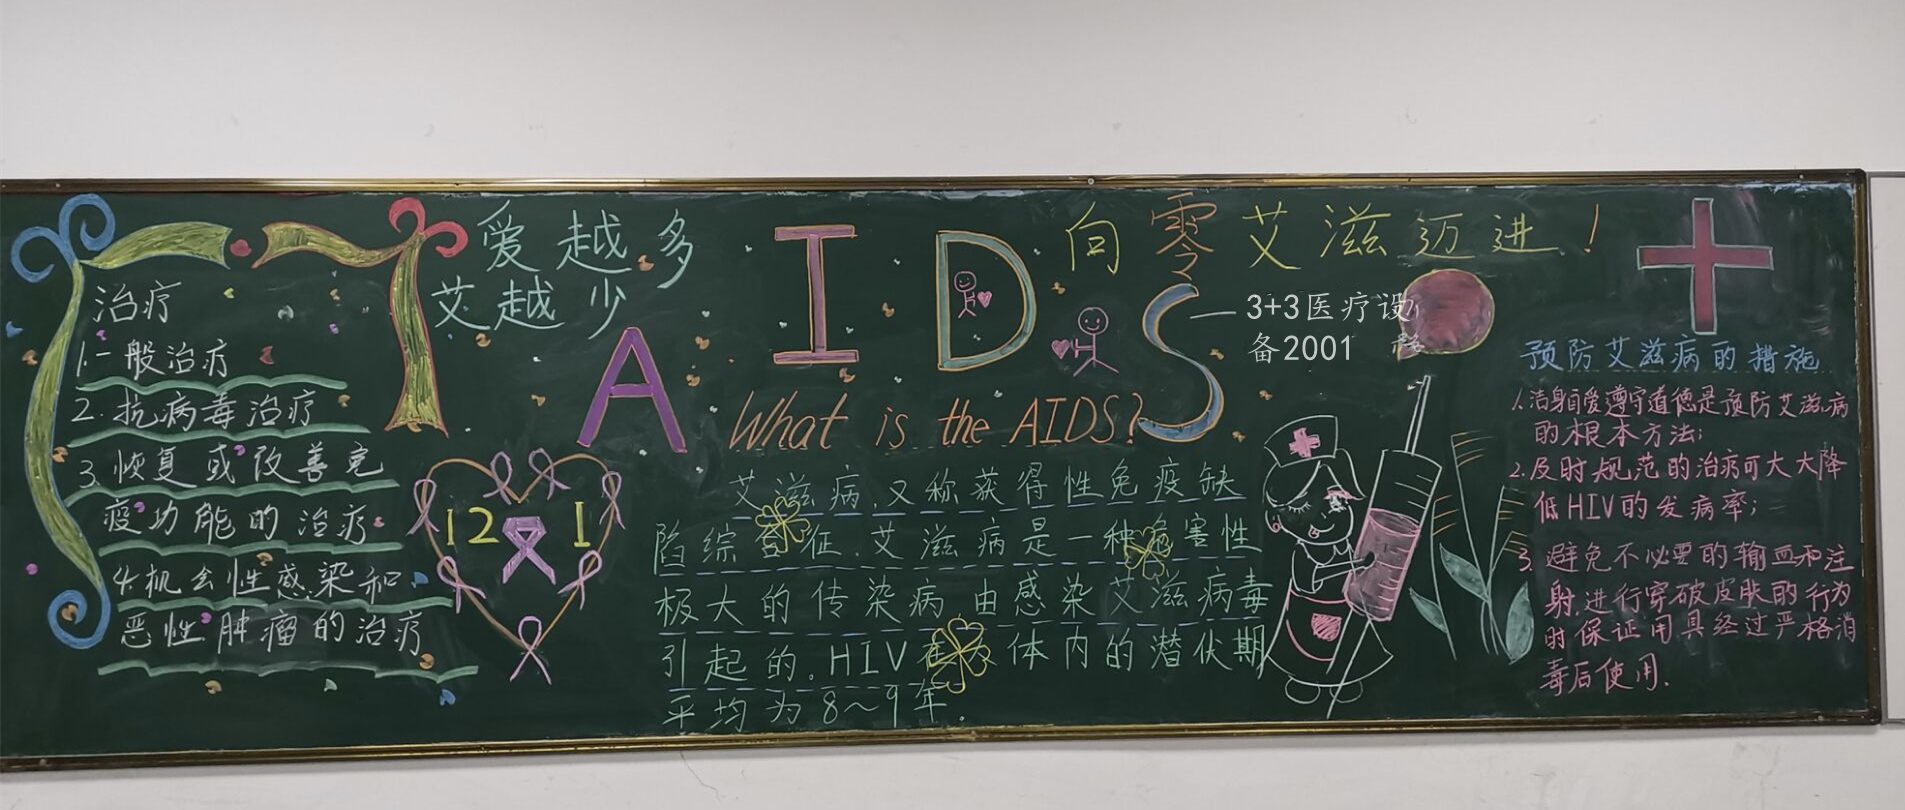 爱越多
艾越少
AIDS
向零艾滋迈进！
3+3医疗设
备2001
治疗
1.一般治疗
2.抗病毒治疗
3.恢复或改善免
疫功能的治疗
4.机会性感染和
恶性肿瘤的治疗
12 1
What is the AIDS?
艾滋病,又称获得性免疫缺
陷综合征.艾滋病是一种危害性
极大的传染病,由感染艾滋病毒
引起的。HIV在人体内的潜伏期
平均为8~9年.
预防艾滋病的措施
1.洁身自爱遵守道德是预防艾滋病
的根本方法;
2.及时规范的治疗可大大降
低HIV的发病率;
3.避免不必要的输血和注
射,进行穿破皮肤的行为
时保证用具经过严格消
毒后使用.